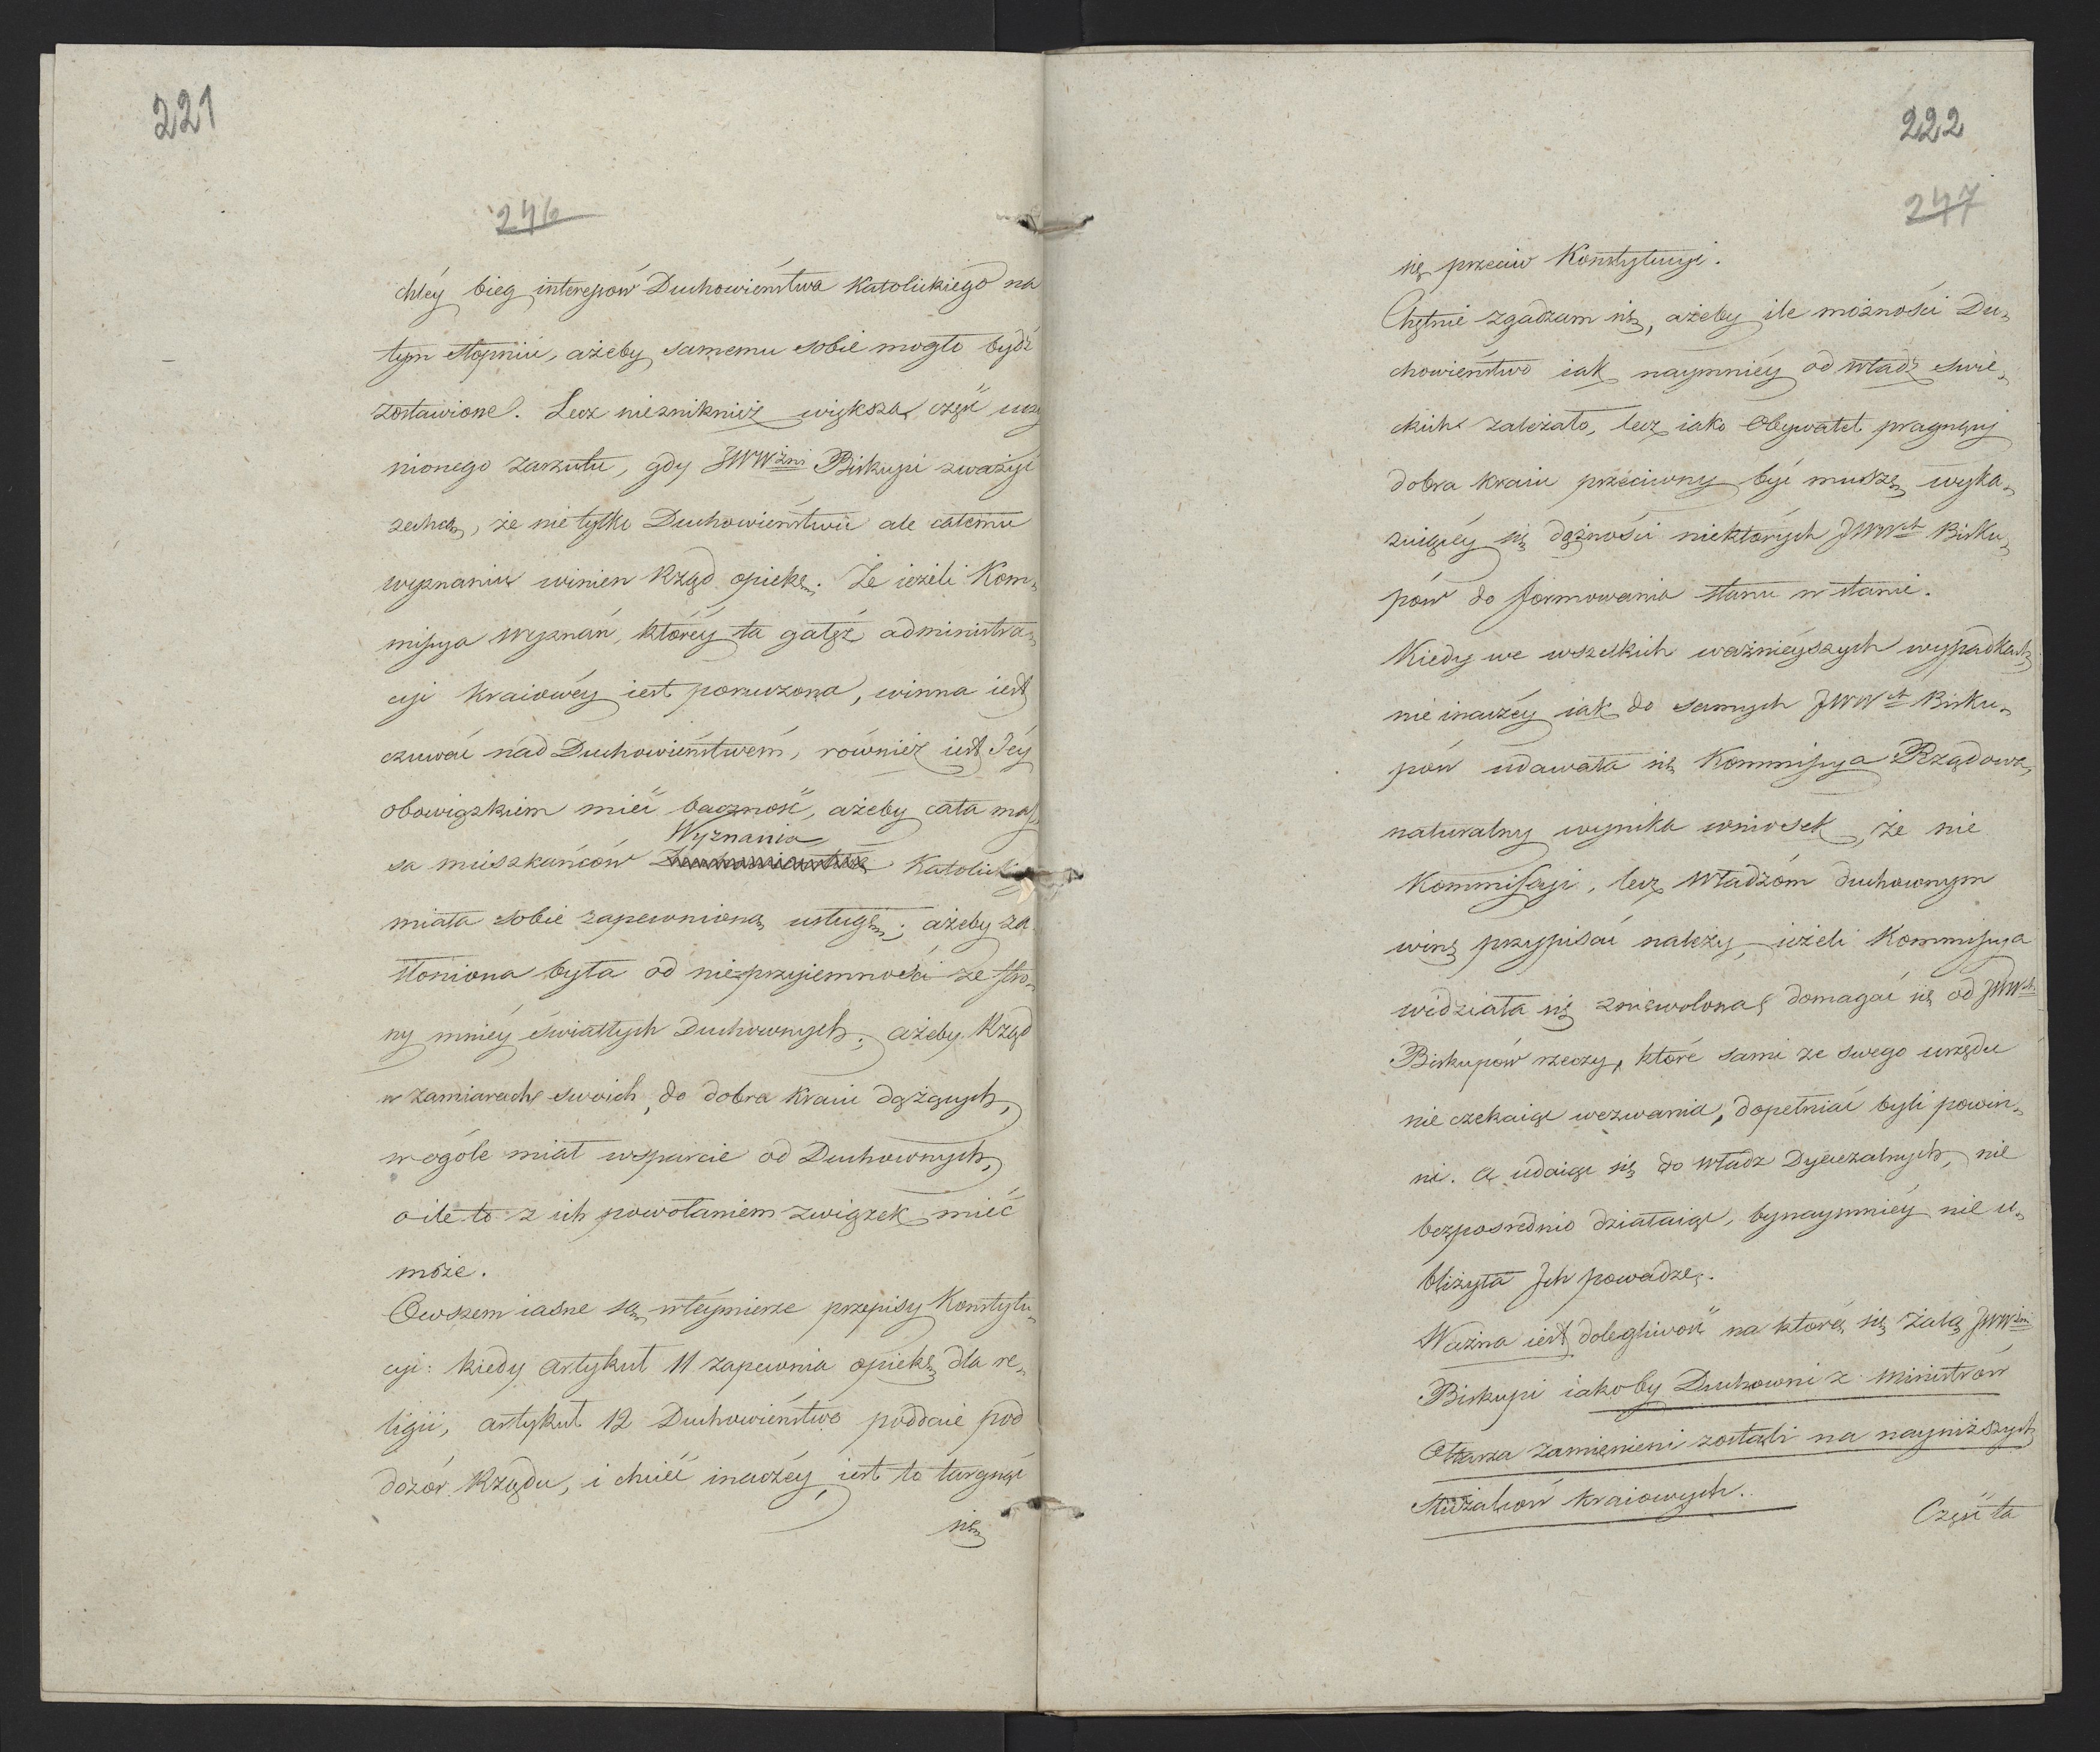 221
246
chléy bieg interessów Duchowieństwa Katolickiego na
tym stopniu, ażeby samemu sobie mogło bydź
zostawione. Lecz nieznikniéż większa część uczy
nionego zarzutu, gdy JWWżni Biskupi zważyć
zechcą, że nie tylko Duchowieństwu ale całemu
wyznaniu winien Rząd opiekę. Że ieżeli Kom„
missya Wyznań, któréy ta gałęź administra„
cyi kraiowéy iest poruczona, winna iest
czuwać nad Duchowieństwem, również iest Jéy
obowiązkiem mieć baczność, ażeby cała mas„
Wyznania
sa mieszkańców Katolicki
miała sobie zapewnioną usługę; ażeby za
słoniona była od nieprzyiemności ze stro„
ny mniéy światłych Duchownych; ażeby Rząd
w zamiarach swoich, do dobra kraiu dążących,
w ogóle miał wsparcie od Duchownych,
o ile to z ich powołaniem związek mieć
może.
Owszem iasne są w téymierze przepisy Konstytu„
cyi: kiedy artykuł 11 zapewnia opiekę dla re„
ligii, artykuł 12 Duchowieństwo poddaie pod
dozór Rządu, i chcieć inaczéy, iest to targnąć
się
222
247
się przeciw Konstytucyi.
Chętnie zgadzam się, ażeby ile możności Du„
chowieństwo iak naymniéy od Władz świe„
ckich zależało, lecz iako Obywatel pragnący
dobra kraiu przeciwny być muszę wyka„
zuiącéy się dążności niektórych JWWch Bisku„
pów do formowania stanu w stanie.
Kiedy we wszelkich ważnieyszych wypadkach
nie inaczéy iak do samych JWWch Bisku„
pów udawała się Kommissya Rządowa,
naturalny wynika wniosek, że nie
Kommissyi, lecz Władzóm duchownym
winę przypisać należy, ieżeli Kommissya
widziała się zniewoloną domagać się od JWWch
Biskupów rzeczy, które sami ze swego urzędu
nie czekaiąc wezwania, dopełniać byli powin„
ni. A udaiąc się do Władz Dyecezalnych, nie
bezpośrednio działaiąc, bynaymniéy nie u„
bliżyła Ich powadze.
Ważna iest dolegliwość na którą się żalą JWWżni
Biskupi iakoby Duchowni z ministrów
Ołtarza zamienieni zostali na nayniższych
służalców kraiowych.
Część ta